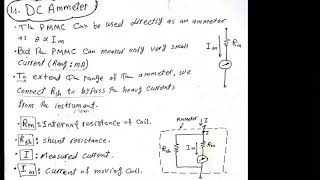 1.1. DC Ammeter
• The PMMC can be used directly as an ammeter
as θ α Im
• But the PMMC can measur only very small
current (Rang: mA)
• To extend the range of the ammeter, we
connect Rsh to bypass the heavy currents
from the instrument.
• Rm : Internal resistance of coil.
• Rsh : shunt resistance.
• I : Measured current.
• Im : Current of moving coil.
Im
Rm
Ammeter
I
Rsh
Im
Rm